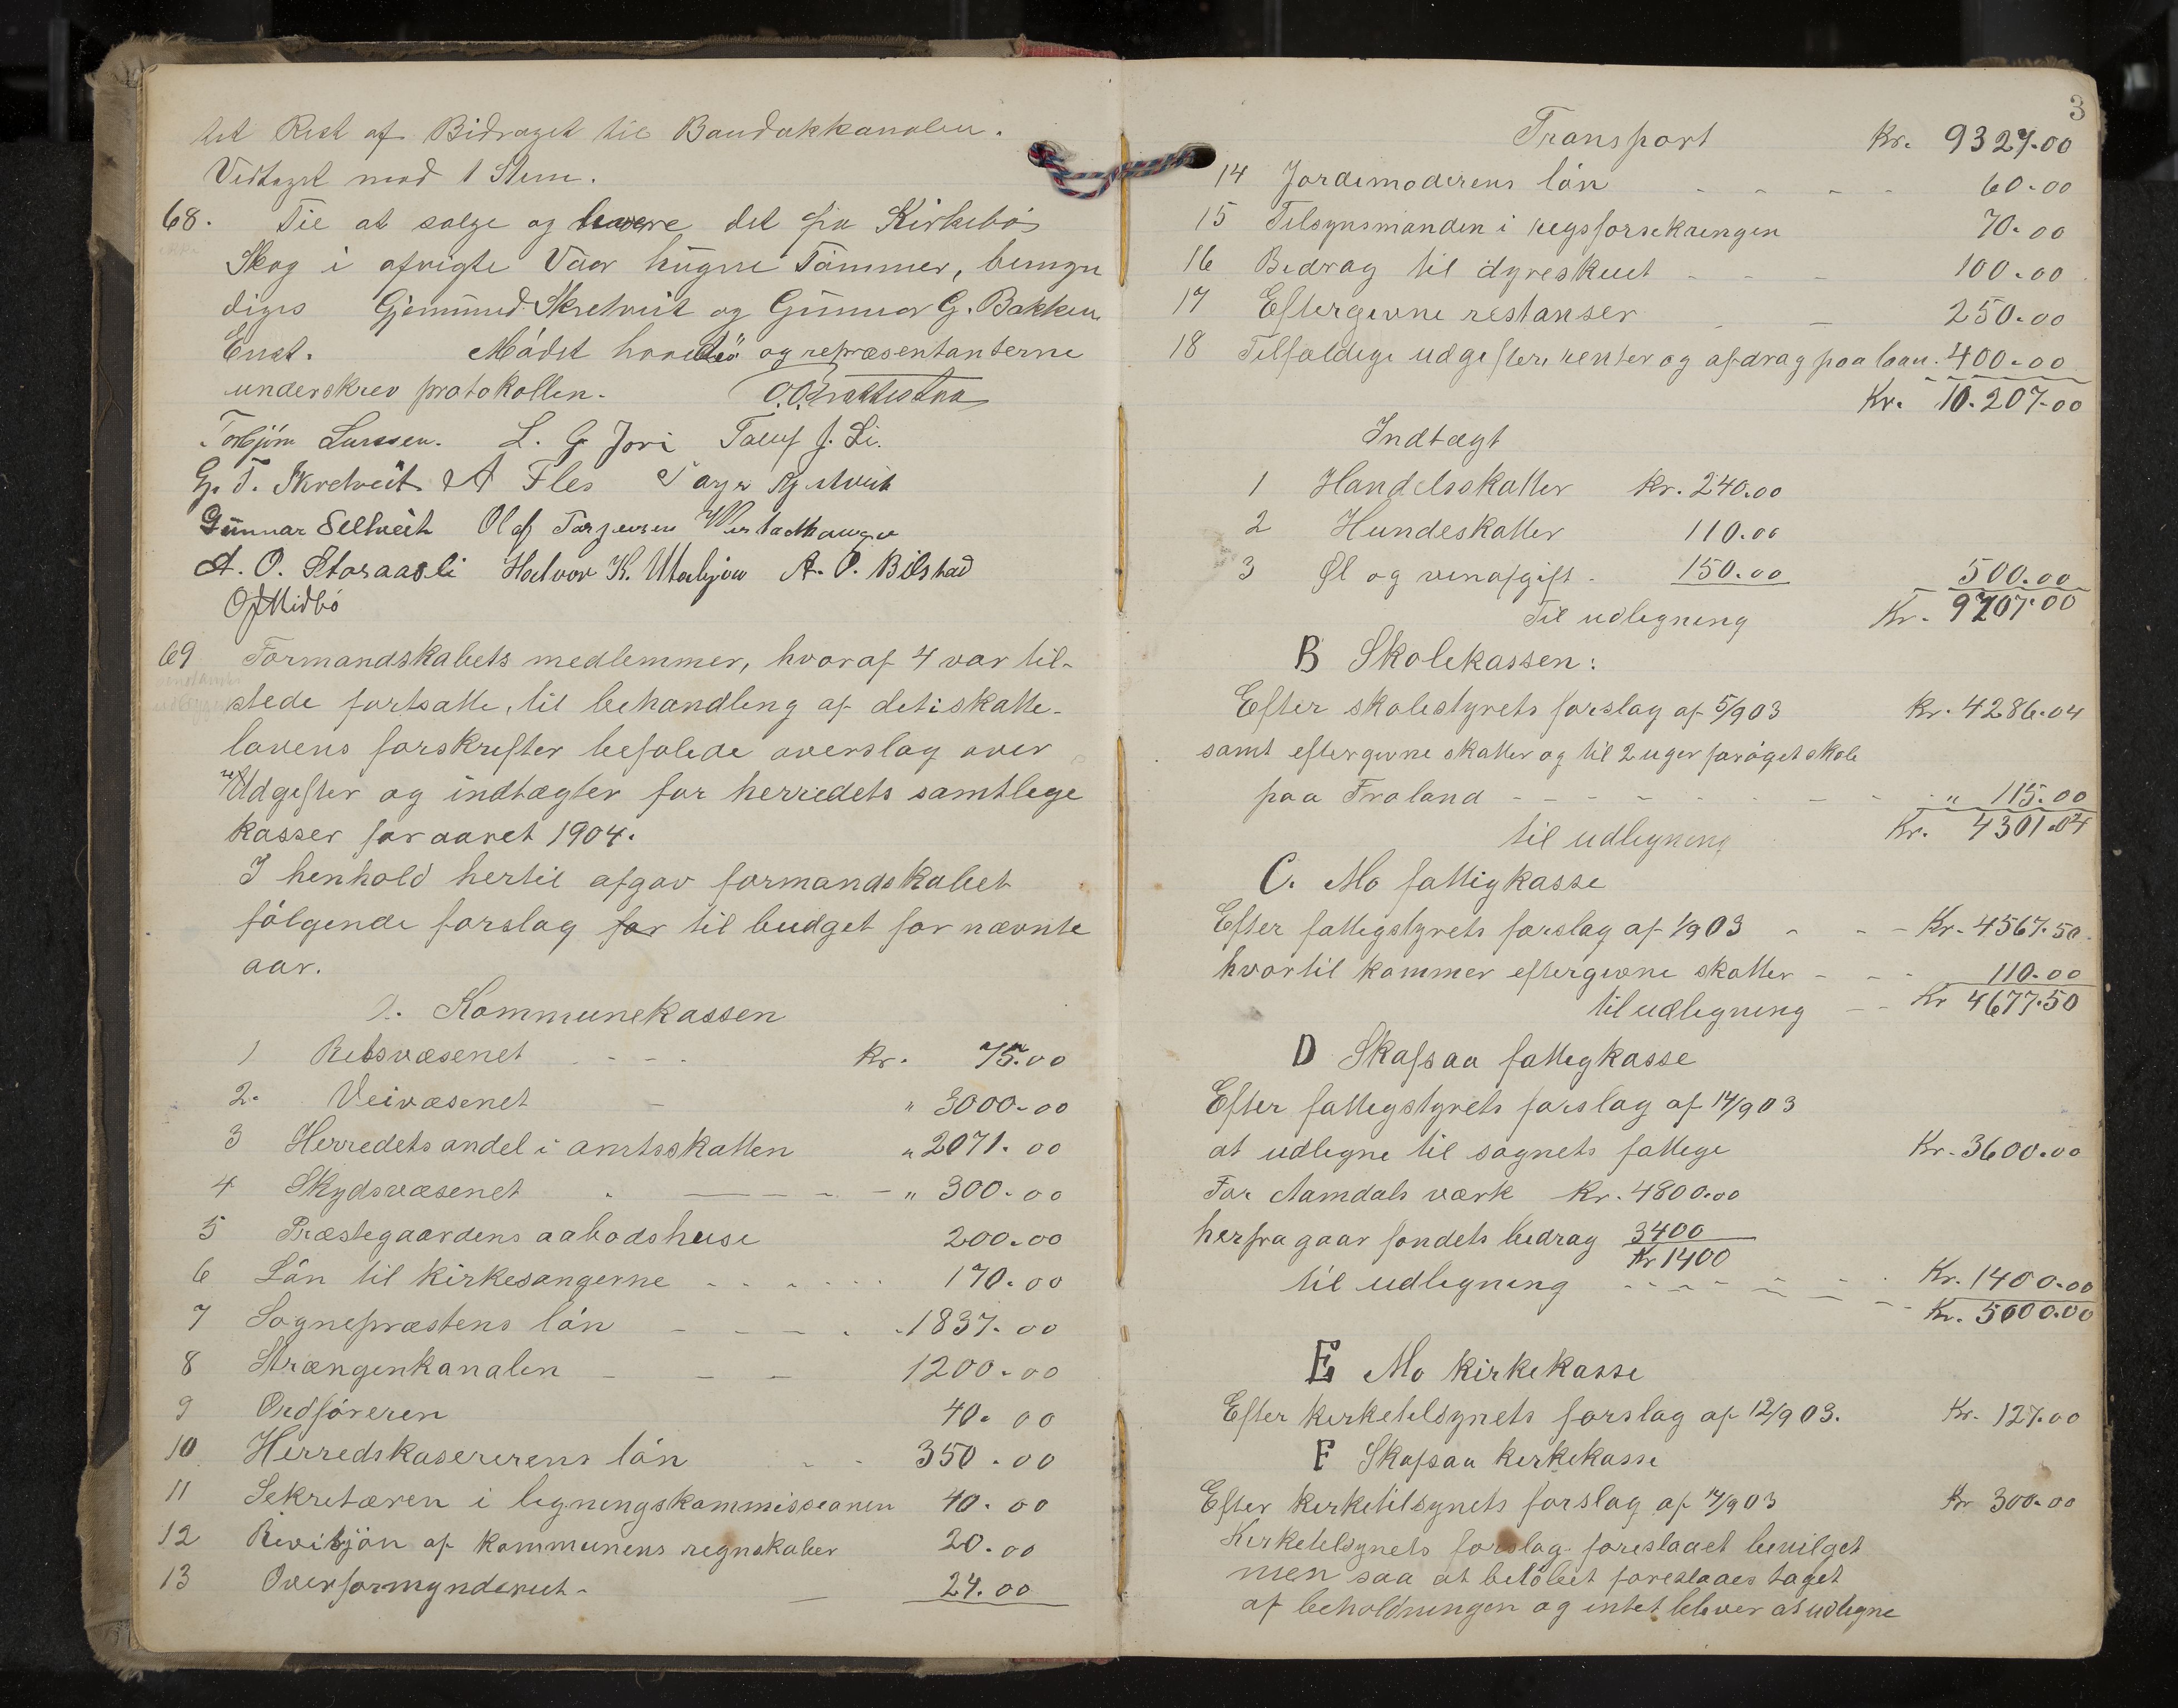 tet Rest af Bidraget til Bandakkanalen.
Vedtaget mod 1 Stem.
68. Til at sælge og levere det fra Kirkebö
Skog i afvigte Vaar hugne Tömmer, bemyn
diges Gjermund Skretveit og Gunnar G. Bakken
Enst. Mödet hævedes og repræsentanterne
underskrev protokollen.
Torbjörn Lurssen. L. G. Jori J. Li.
G. T. Skretveit A Fles
Gunnar Selltveit Olaf Torjeussen
A. O. Storaasli Halvor K. A. O. Bilstad
O J Midbö
69 Formandskabets medlemmer, hvoraf 4 var til-
stede fortsatte, til behandling af det i skatte-
lovens forskrifter befalede overslag over
udgifter og indtægter for herredets samtlege
kasser for aaret 1904.
I henhold hertil afgav formandskabet
fölgende forslag for til budget for nævnte
aar.
A. Kommunekassen
1 Retsvæsenet - - - - kr. 75.00
2. Veivæsenet - " 3000.00
3 Herredets andel i amtsskatten " 2071.00
4 Skydsvæsenet - - - - " 300.00
5 Præstegaardens aabodshuse 200.00
6 Lön til kirkesangerne - - - - - 170.00
7 Sognepræstens lön - - - - - 1837.00
8 Strængenkanalen - - - 1200.00
9 Ordföreren 40.00
10 Herredskasererens lön - - 350.00
11 Sekretæren i legningskommissionen 40.00
12 Revisjön af kommunens regnskaber 20.00
13 Overformynderiet - - 24.00
3
Transport Kr. 9327.00
14 Jordemoderens lön - - - - 60.00
15 Tilsynsmanden i 70.00
16 Bidrag til dyreskuet - - - 100.00
17 Eftergivne restanser - - 250.00
18 Tilfældige udgifter, renter og afdrag paa laan. 400.00
Kr. 10.207.00
Indtægt
1 Handelsskatter Kr. 240.00
2 Hundeskatter 110.00
3 Øl og vinafgift - 150.00 500.00
Til udligning Kr. 9707.00
B Skolekassen:
Efter skolestyrets forslag af 5/9 03 Kr. 4286.04
samt eftergivne skatter og til 2 uger foröget skole
paa Froland - - - - - - - " 115.00
til udligning Kr. 4301.04
C. Mo fattigkasse
Efter fattigstyrets forslag af 1/9 03 - - - Kr. 4567.50
hvortil kommer eftergivne skatter - - - 110.00
til udligning - - Kr 4677.50
D Skafsaa fattigkasse
Efter fattigstyrets forslag af 14/9 03
at udligne til sognets fattige Kr. 3600.00
For Aamdals værk Kr. 4800.00
herfra gaar fondets bidrag 3400
Kr 1400
til udligning - - - - - - Kr. 1400.00
Kr. 5000.00
E Mo kirkekasse
Efter kirketilsynets forslag af 12/9 03. Kr. 127.00
F Skafsaa kirkekasse
Efter kirketilsynets forslag af 14/9 03 Kr 300.00
Kirketilsynets forslag foreslaaet bevilget
men saa at belöbet foreslaaes taget
af beholdningen og intet bliver at udligne